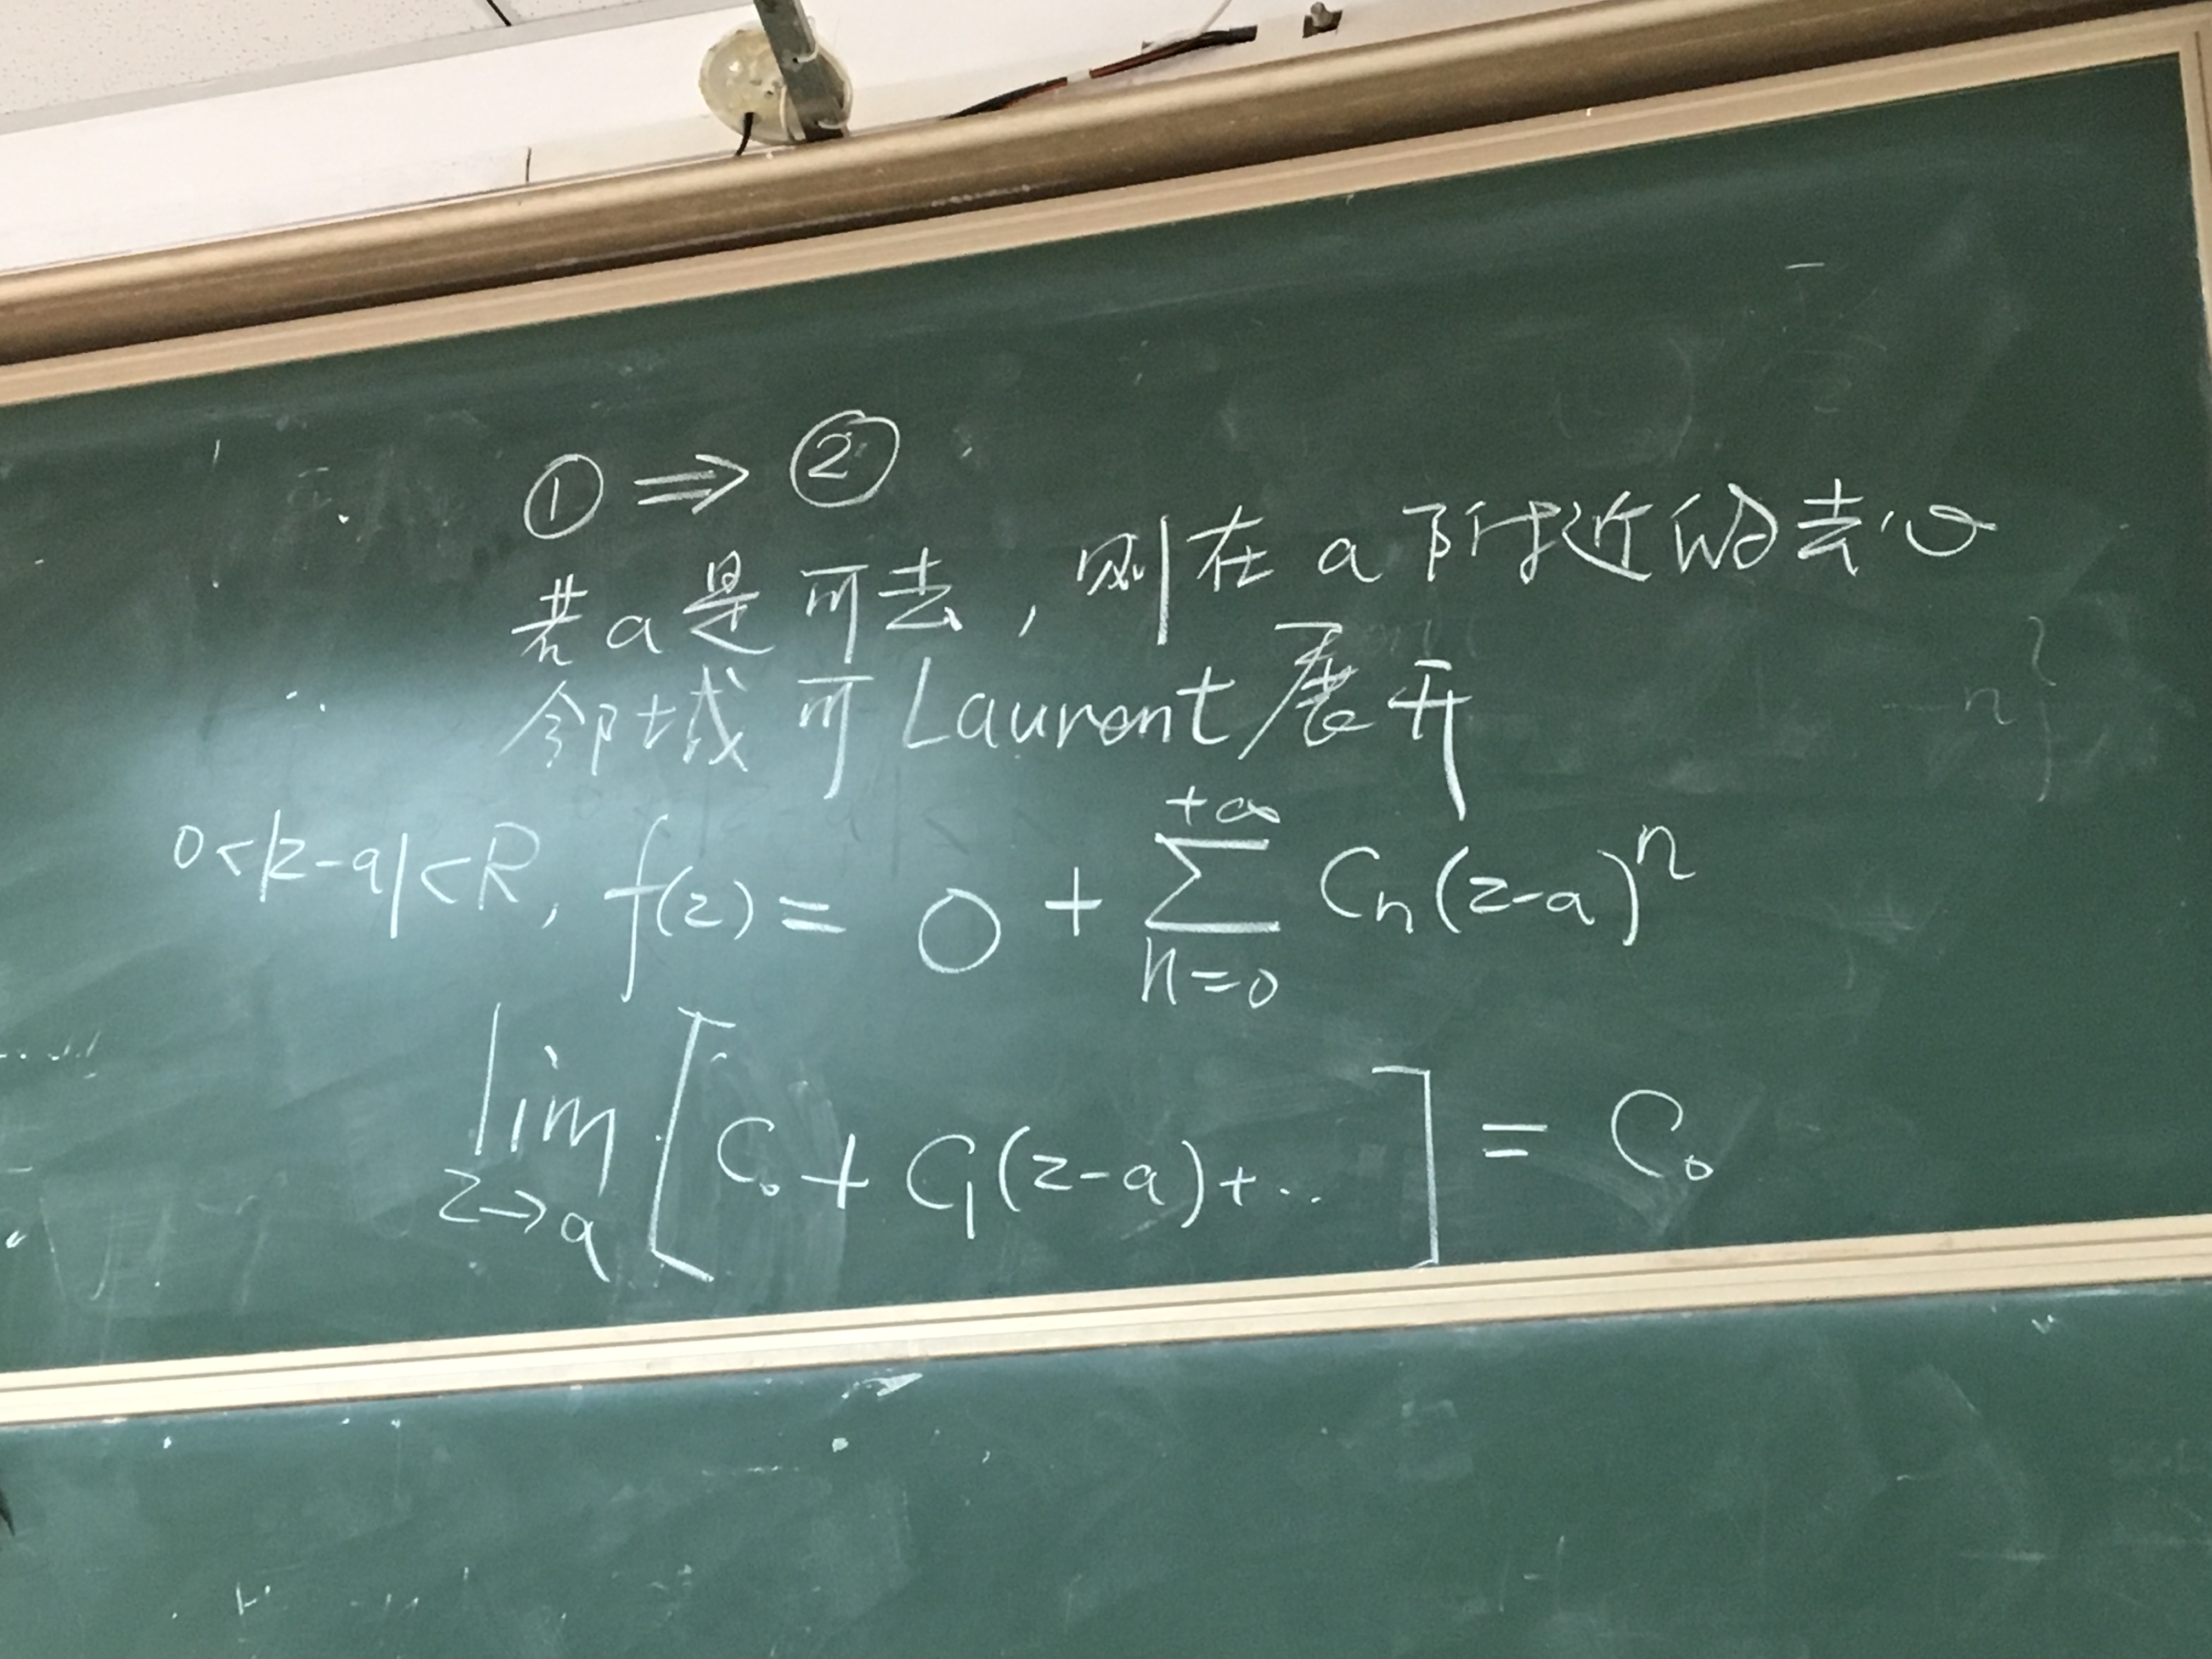 ① ⇒ ②
若a是可去，则在a附近的去心
邻域可Laurent展开
0<|z-a|<R, f(z) = 0 + \sum_{n=0}^{+∞} C_n(z-a)^n
lim_{z→a} [C_0 + C_1(z-a)+.. ] = C_0